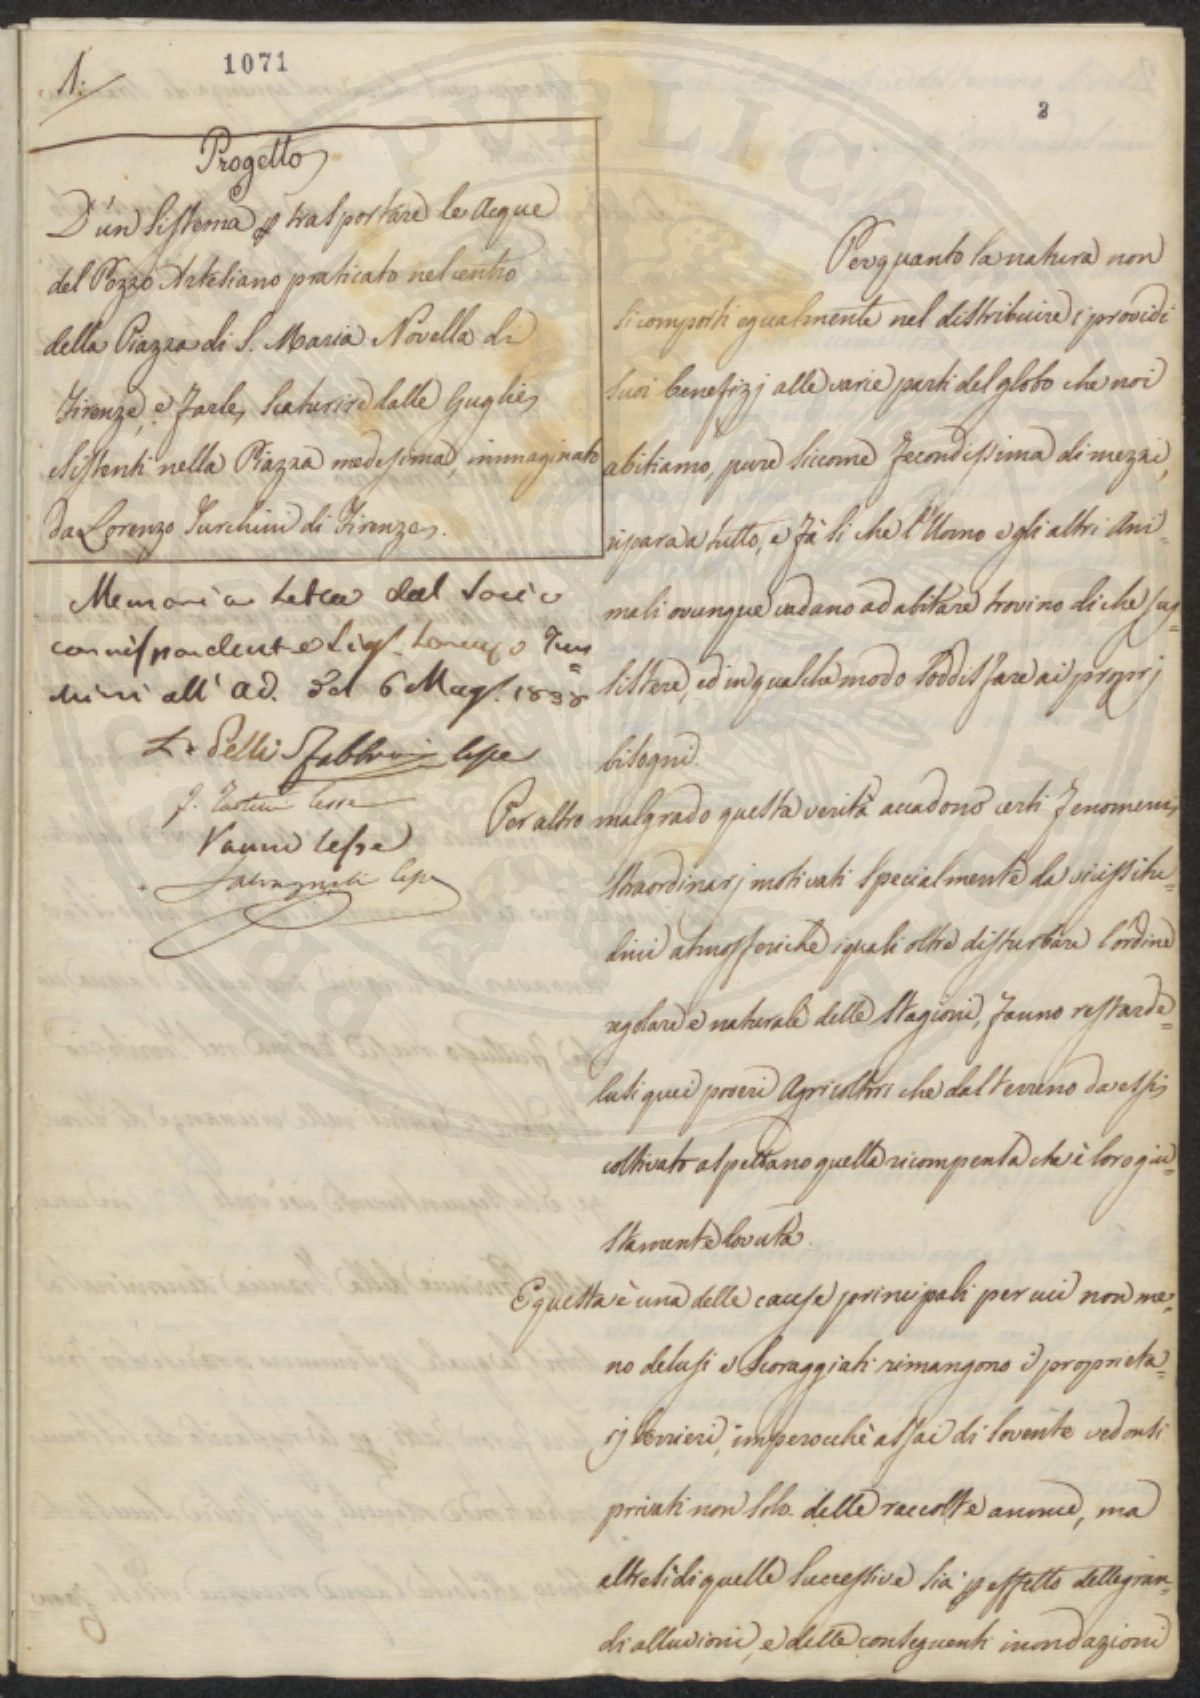 1:
1071
2
Progetto
D'un Sistema p trasportare le Acque
del Pozzo Artesiano praticato nel centro
della Piazza di S. Maria Novella di
Firenze, e farle scaturire dalle Guglie
esistenti nella Piazza medesima, immaginato
da Lorenzo Turchini di Firenze.
Memoria letta dal Socio
corrispondente Sigr. Lorenzo Tur=
chini all' Ad. del 6 Magg. 1838
L. Pelli Fabbroni
Vanni
Perquanto la natura non
si comporti egualmente nel distribuire i providi
suoi benefizj alle varie parti del globo che noi
abitiamo, pure siccome fecondissima di mezzi,
ripara a tutto, e fà si che l'Uomo e gli altri Ani=
mali ovunque vadano ad abitare trovino di che sus=
sistere, ed in qualche modo soddisfare ai proprj
bisogni.
Per altro malgrado questa verità accadono certi fenomeni
straordinarj motivati specialmente da vicissitu=
dini atmosferiche i quali oltre disturbare l'ordine
regolare e naturale delle Stagioni, fanno restar de=
lusi quei poveri Agricoltori che dal terreno da essi
coltivato aspettano quella ricompensa che è loro giu=
stamente dovuta.
E questa è una delle cause principali per cui non me=
no delusi e scoraggiati rimangono i proprieta=
rj terrieri, imperocchè assai di sovente vedonsi
privati non solo delle raccolte annue, ma
altresì di quelle successive sia p effetto delle gran=
di alluvioni, e delle conseguenti inondazioni